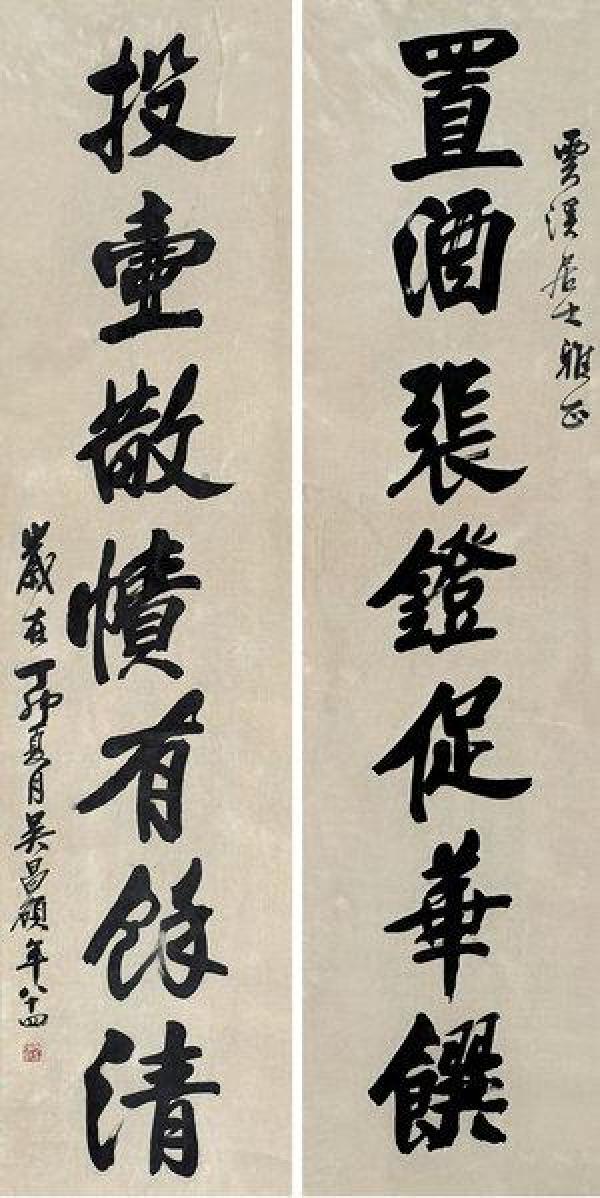 雲溪居士雅正
置酒張鐙促華饌
投壺散幘有餘清
歲在丁卯夏月吳昌碩年八十四